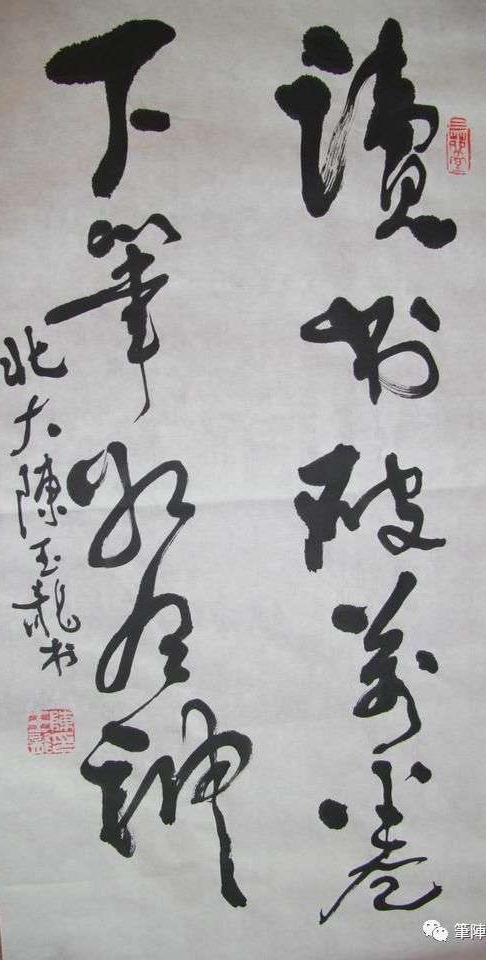 讀书破萬卷
下筆如有神
北大陳玉龍书
筆陣